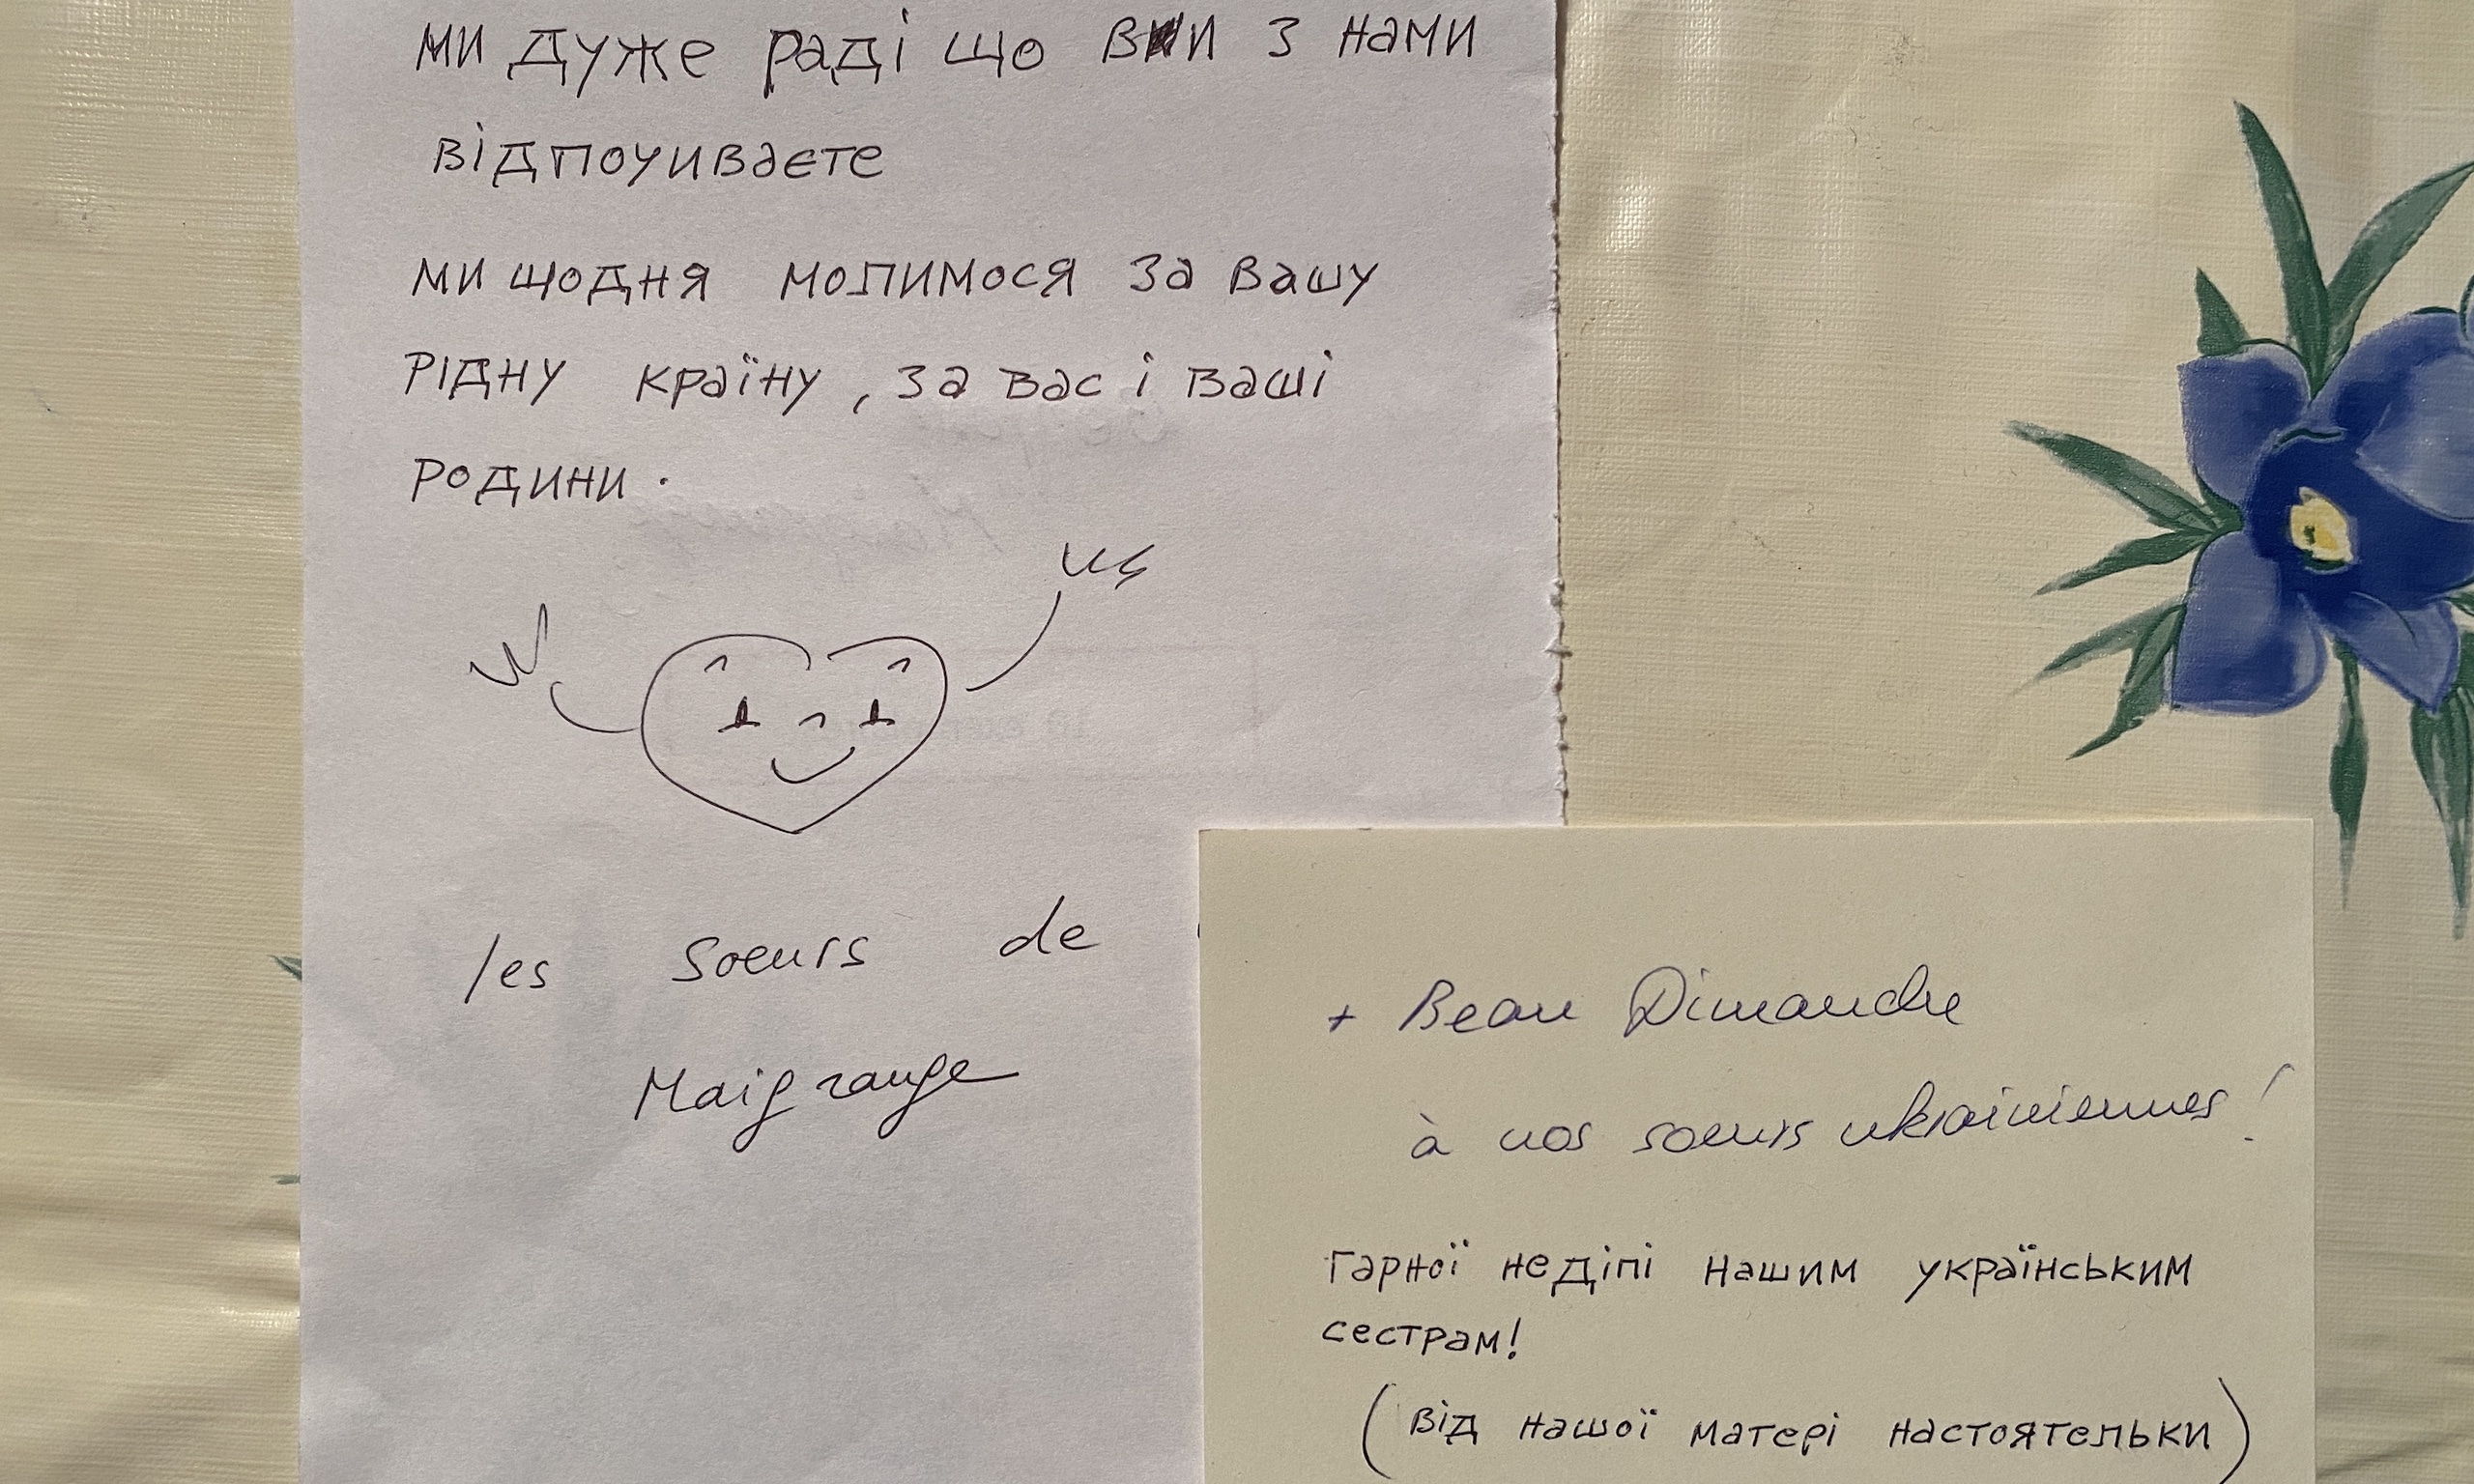 ми дуже раді що ви з нами
відпочиваєте
ми щодня молимося за вашу
рідну країну, за вас і ваші
родини.
les soeurs de
Maigrauge
+ Beau Dimanche
à nos soeurs ukrainiennes !
гарної неділі нашим українським
сестрам!
(від нашої матері настоятельки)